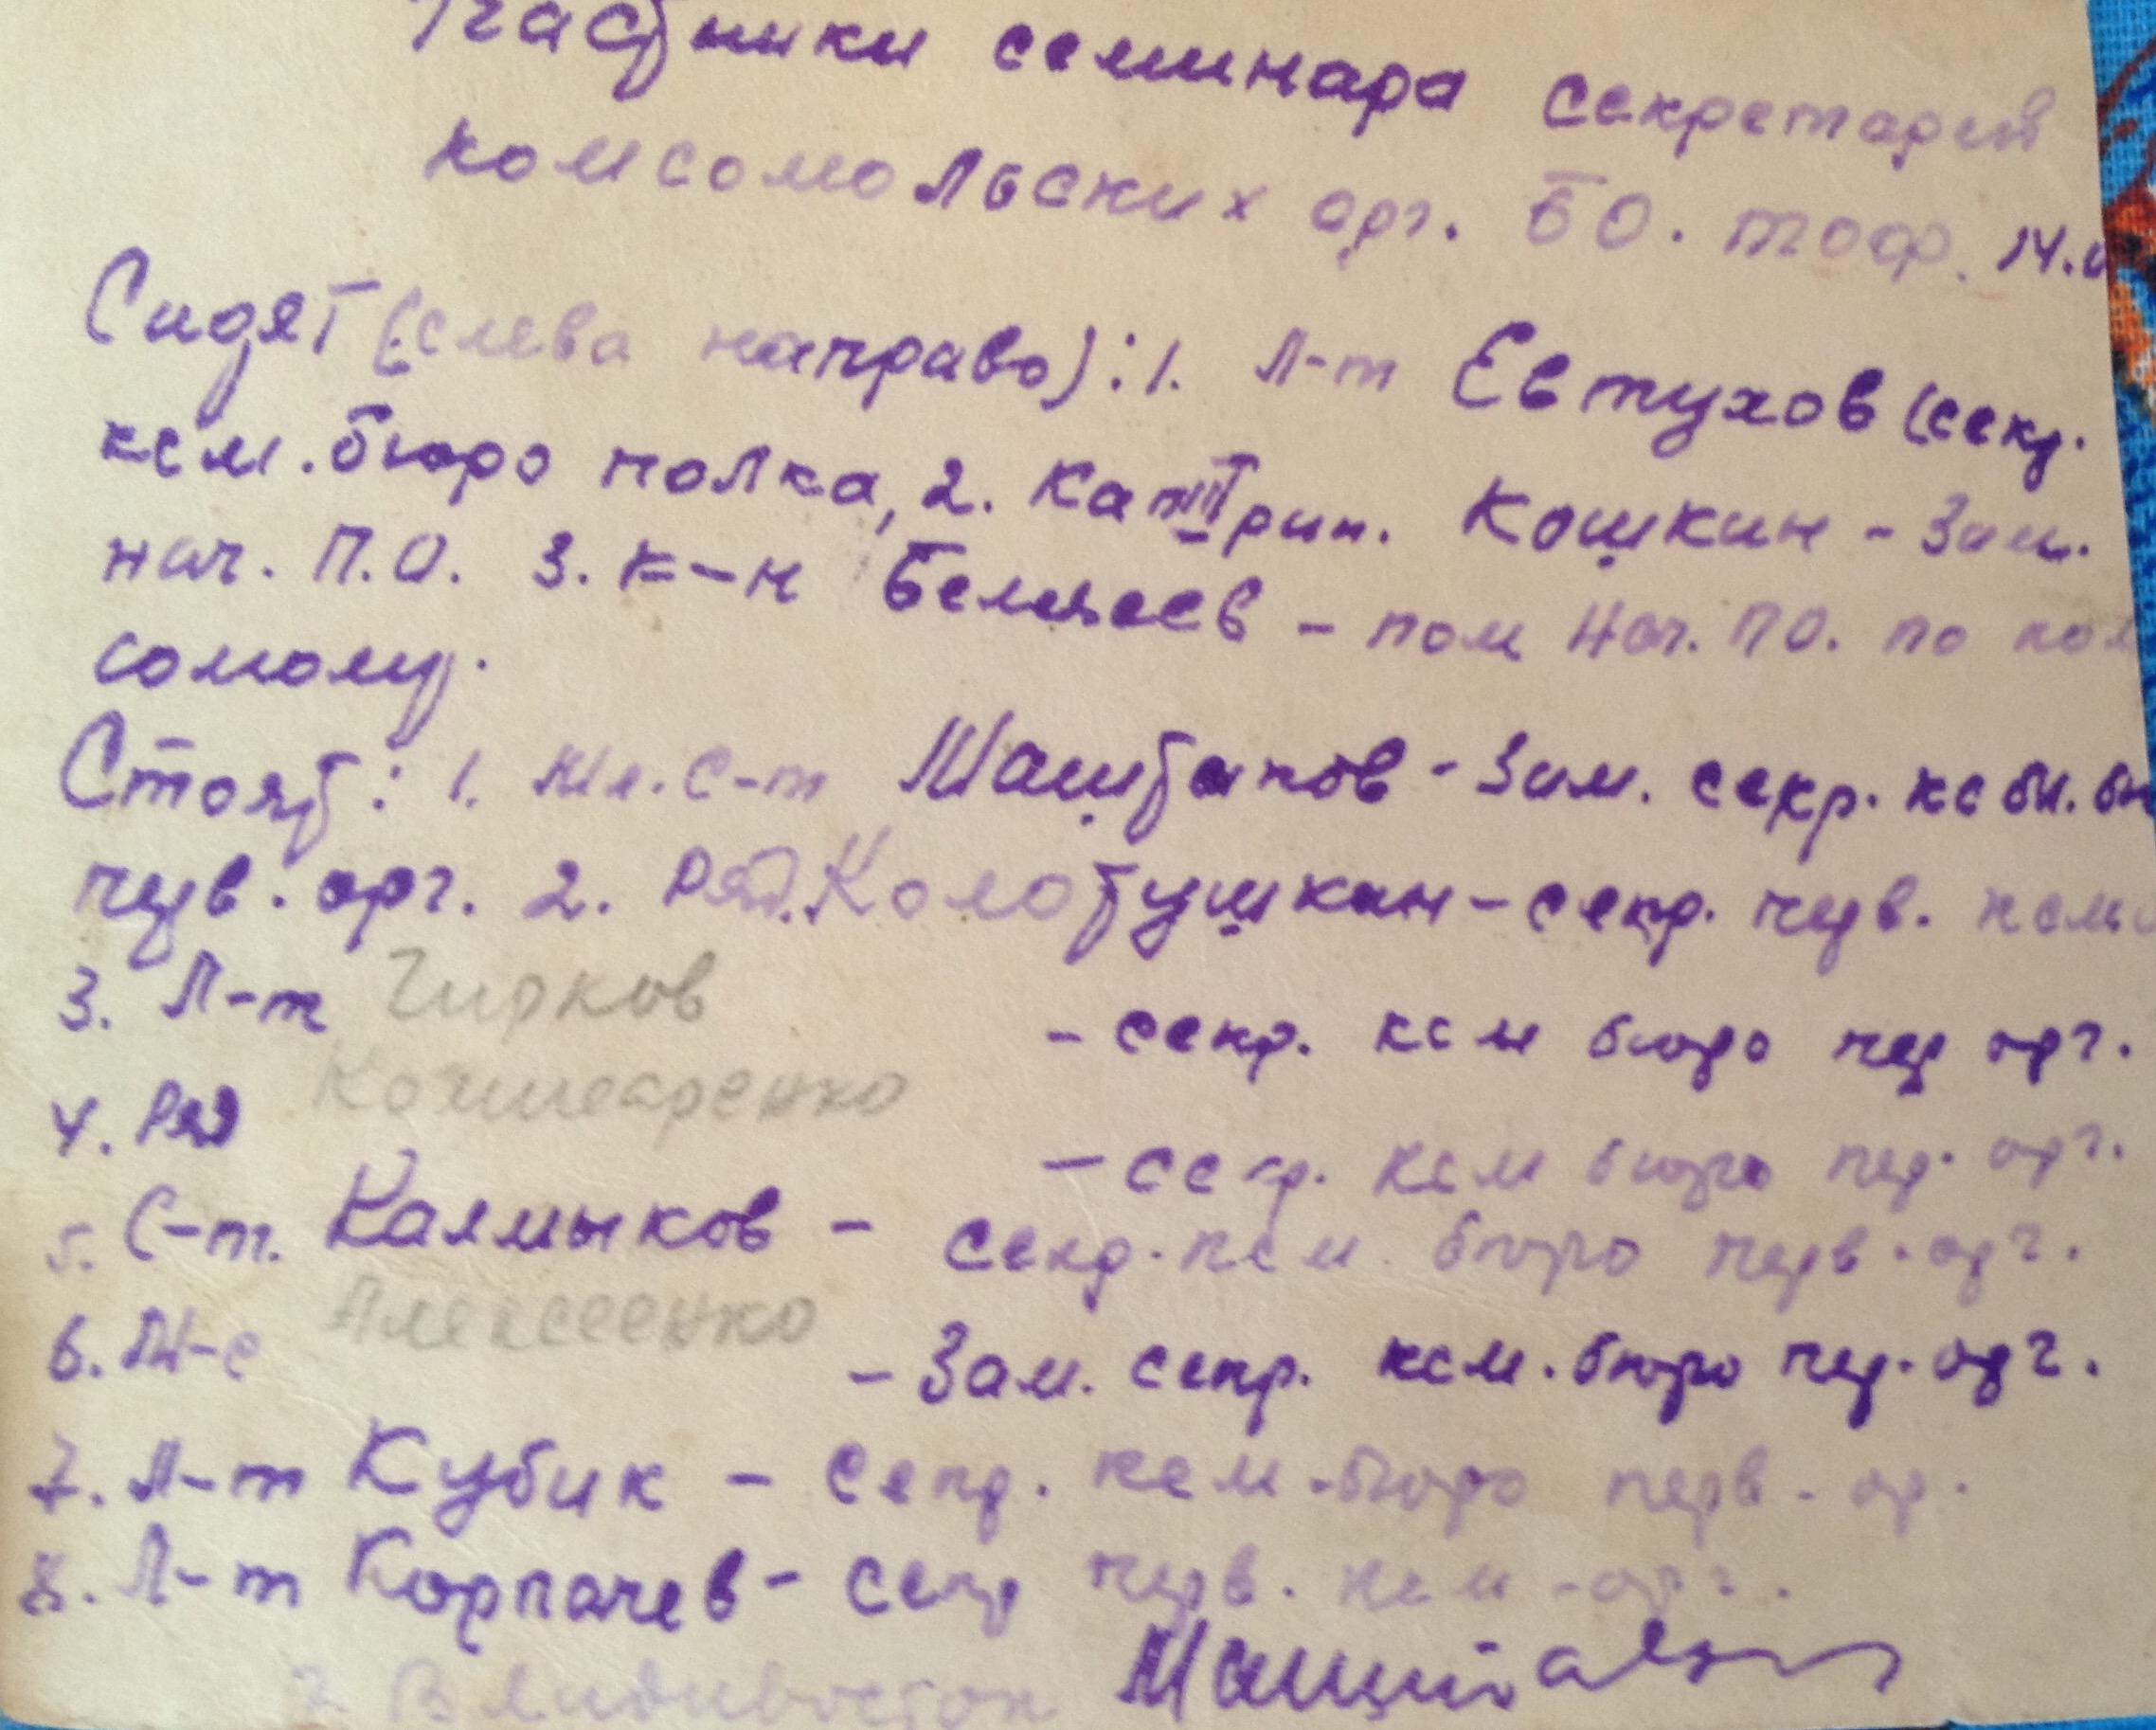 Участники семинара секретарей
комсомольских орг. БО. тоф. 14.
Сидят (слева направо): 1. Л-т Евтухов (секр.
ксм. бюро полка, 2. Кап III ран. Кошкин - Зам.
нач. П.О. 3. к-н Беляев - пом нач. ПО. по ком
сомолу.
Стоят: 1. Мл. с-т Маштаков - Зам. секр. ксм. бю
перв. орг. 2. Ряд. Колотушкин - секр. перв. ксм
3. Л-т Чирков - секр. ксм бюро пер орг.
4. Ряд - секр. ксм бюро пер. орг.
5. С-т. Калмыков - секр. ксм. бюро перв. орг.
6. Алексеенко - Зам. секр. ксм. бюро пер. орг.
7. Л-т Кубик - секр. ксм. бюро перв. ор.
8. Л-т Корпачев - секр перв. ксм - орг.
г. Владивосток